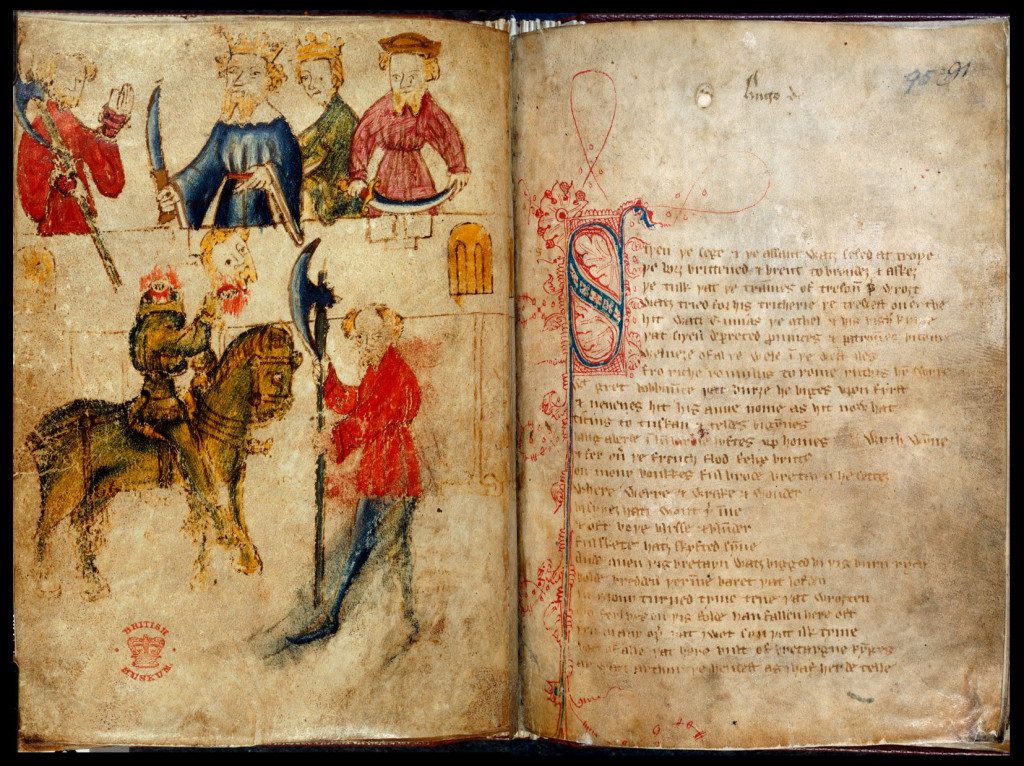 BRITISH
MUSEUM
Hugo de
95 91
Siþen þe sege & þe assaut watz sesed at troye
þe borȝ brittened & brent to brondez & askez
þe tulk þat þe trammes of tresoun þer wroȝt
watz tried for his tricherie þe trewest on erthe
hit watz ennias þe athel & his highe kynde
þat siþen depreced prouinces & patrounes bicome
welneȝe of al þe wele in þe west iles
fro riche romulus to rome ricchis hym swyþe
with gret bobbaunce þat burȝe he biges vpon fyrst
& neuenes hit his aune nome as hit now hat
ticius to tuskan & teldes bigynnes
langaberde in lumbardie lyftes vp homes wyth wynne
& fer ouer þe french flod felix brutus
on mony bonkkes ful brode bretayn he settez
where werre & wrake & wonder
bi syþez hatz wont þerinne
& oft boþe blysse & blunder
ful skete hatz skyfted synne
Ande quen þis bretayn watz bigged bi þis burn rych
bolde bredden þerinne baret þat lofden
in mony turned tyme tene þat wroȝten
mo ferlyes on þis folde han fallen here oft
þen in any oþer þat I wot syn þat ilk tyme
bot of alle þat here bult of bretaygne kynges
ay watz arthur þe hendest as I haf herde telle